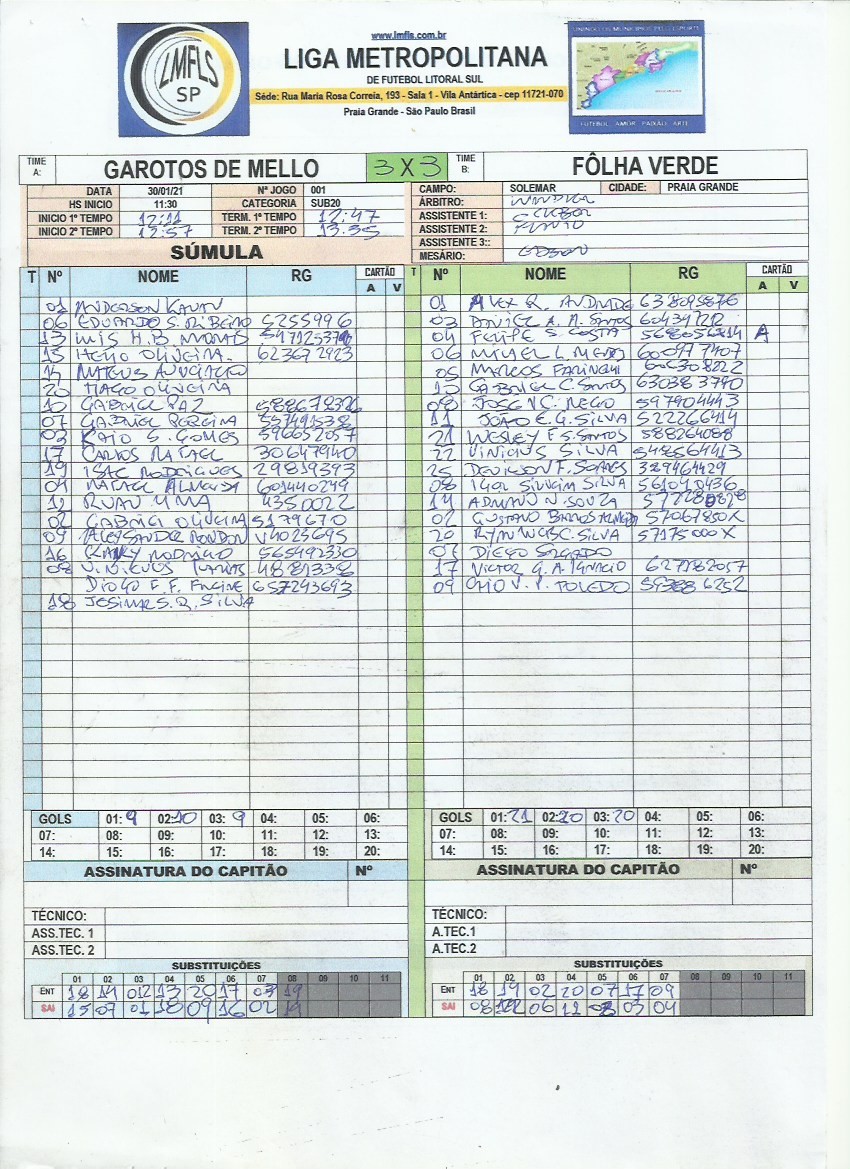 www.lmfls.com.br
LMFLS SP
LIGA METROPOLITANA
DE FUTEBOL LITORAL SUL
Séde: Rua Maria Rosa Correia, 193 - Sala 1 - Vila Antártica - cep 11721-070
Praia Grande - São Paulo Brasil
FUTEBOL AMOR PAIXÃO ARTE
TIME A: GAROTOS DE MELLO 3 X 3 TIME B: FÔLHA VERDE
DATA 30/01/21 Nº JOGO 001 CAMPO: SOLEMAR CIDADE: PRAIA GRANDE
HS INICIO 11:30 CATEGORIA SUB20 ÁRBITRO:
INICIO 1º TEMPO 12:11 TERM. 1º TEMPO 12:47 ASSISTENTE 1:
INICIO 2º TEMPO 12:57 TERM. 2º TEMPO 13:35 ASSISTENTE 2:
ASSISTENTE 3::
SÚMULA MESÁRIO: EDSON
T Nº NOME RG CARTÃO A V T Nº NOME RG CARTÃO A V
01 ANDERSON KAUAN
06 EDUARDO S. RIBEIRO 5255996
13 LUIS H.B. MORAIS
15 HELIO OLIVEIRA. 623672923
14 MATEUS
20 TIAGO OLIVEIRA
10 GABRIEL PAZ
07 GABRIEL PEREIRA 557491538
03 KAIO S. GOMES 596652057
17 CARLOS RAFAEL 30647940
19 ISAC RODRIGUES 29819393
04 RAFAEL ALMEIDA 601440249
12 RUAN LIMA 4350022
02 GABRIEL OLIVEIRA 5179670
09 ALEYSANDER RONDON V4023695
16 RODRIGO 565492330
08 VINICIUS 48813338
DIOGO F. F. FREIRE 657243693
18 JOSIMAR S. R. SILVA
01 ALEX R. ANDRADE 638095876
03 DANIEL A. A. SANTOS 60434212
04 FELIPE S. COSTA A
06 MIGUEL L. MENDES
05 MARCOS FARINCHI
10 GABRIEL C SANTOS 630383790
JOSE V.C. NEGO 597904443
11 JOÃO E. G. SILVA 522266414
21 WESLEY F S. SANTOS 588264088
22 VINICIUS SILVA 548564413
25 DEVILSON F. SOARES 389464429
08 IGOR SILVEIRA SILVA 561040436
14 ADMAUN N. SOUZA
02 GUSTAVO BARROS ALMEIDA 57067850X
20 RYAN C. SILVA 57175000X
07 DIEGO SALGADO
17 VICTOR G. A. IGNACIO 627282057
09 CAIO V. P. TOLEDO
GOLS 01: 9 02: 10 03: 9 04: 05: 06: GOLS 01: 21 02: 20 03: 20 04: 05: 06:
07: 08: 09: 10: 11: 12: 13: 07: 08: 09: 10: 11: 12: 13:
14: 15: 16: 17: 18: 19: 20: 14: 15: 16: 17: 18: 19: 20:
ASSINATURA DO CAPITÃO Nº ASSINATURA DO CAPITÃO Nº
TÉCNICO: TÉCNICO:
ASS.TEC. 1 A.TEC.1
ASS.TEC. 2 A.TEC.2
SUBSTITUIÇÕES SUBSTITUIÇÕES
01 02 03 04 05 06 07 08 09 10 11 01 02 03 04 05 06 07 08 09 10 11
ENT 18 14 012 13 20 17 03 19 ENT 18 14 02 20 07 17 09
SAI 15 07 01 10 09 16 02 SAI 08 06 11 03 04